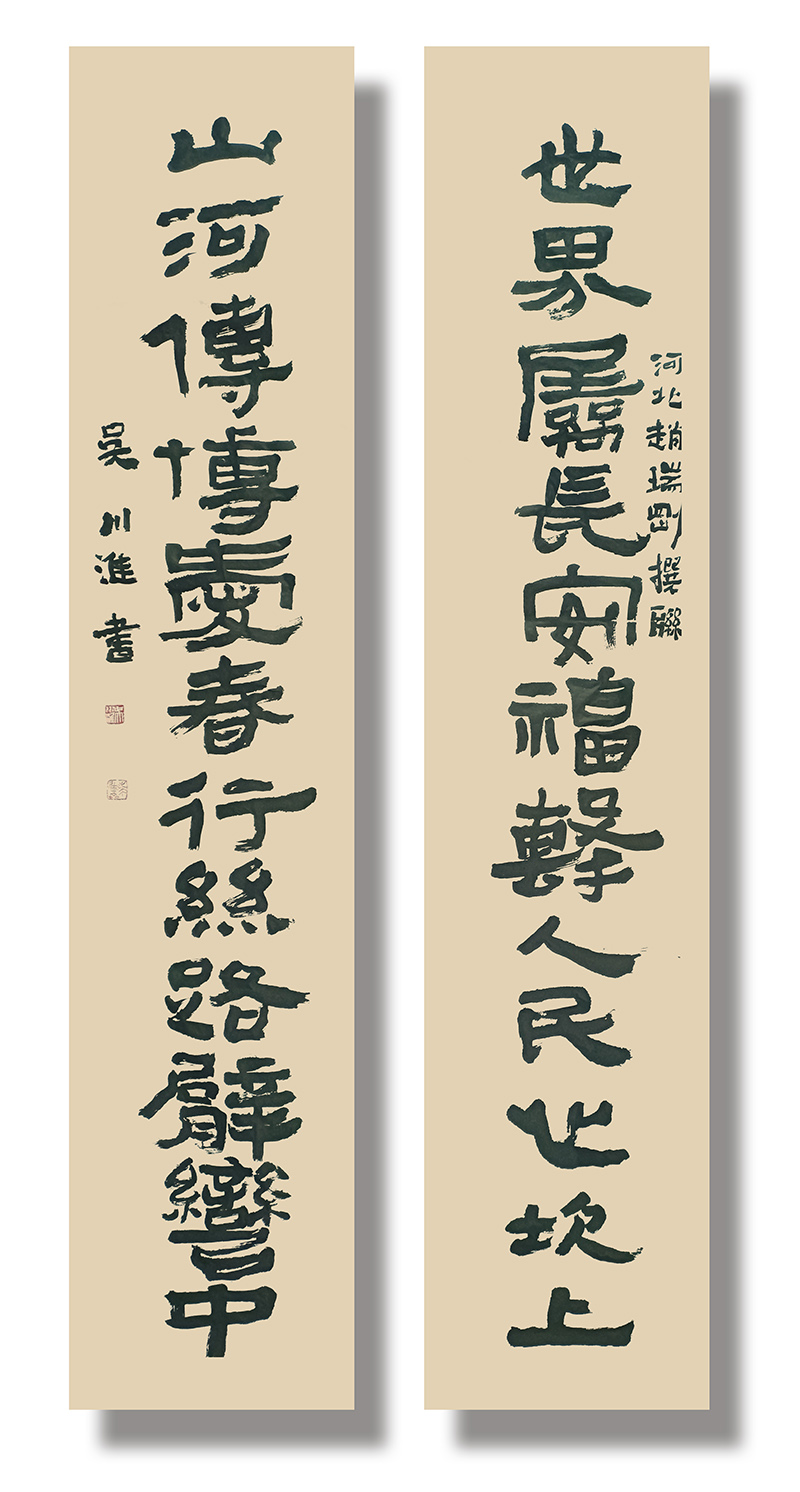 世界屬長安福繫人民心坎上
河北趙瑞剛撰聯
山河傳博愛春行絲路臂彎中
吳川淮書